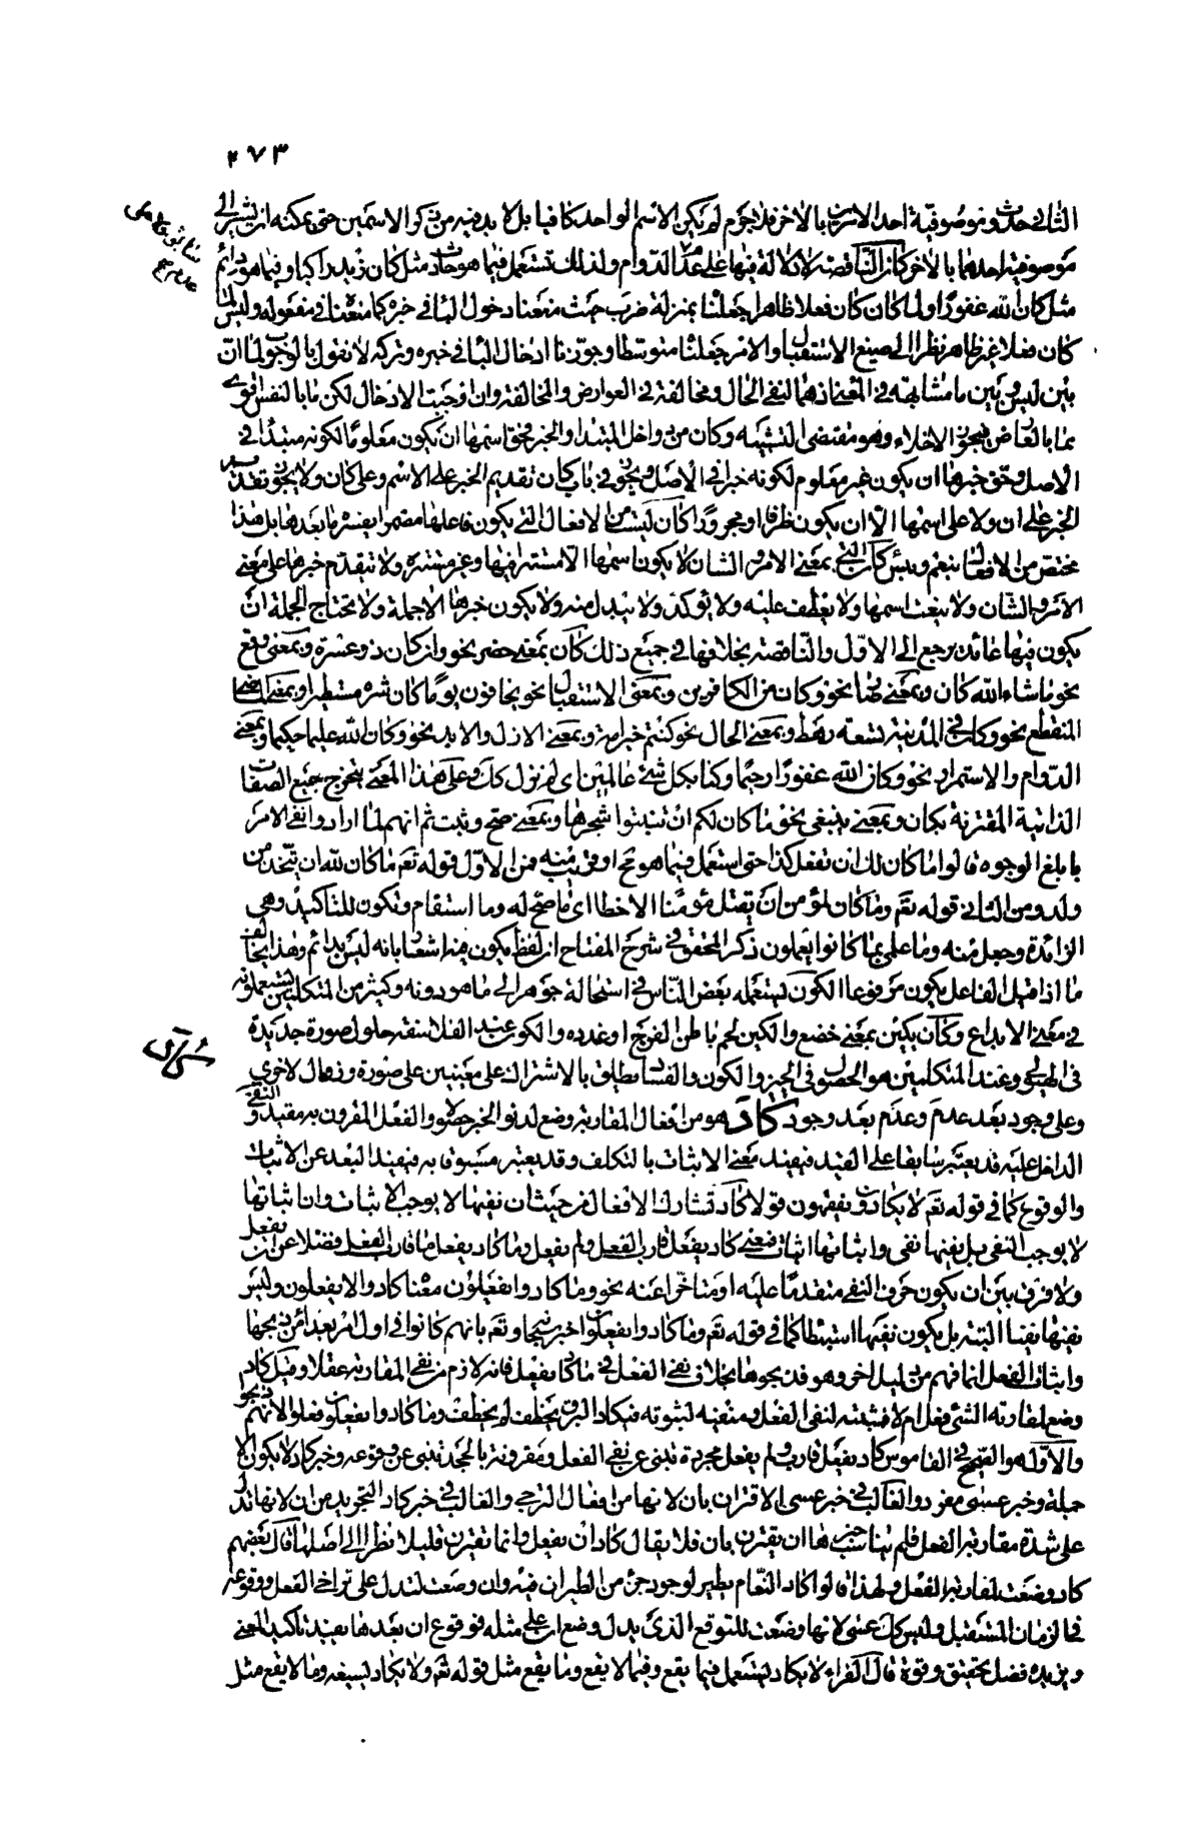 ٢٧٣
الثاني حدث وموصوفية احد الامرين بالاخر فلا جرم لم يكن الاسم الواحد كافيا بل لا بد فيه من ذكر الاسمين حتى يمكنه ان يشير الى
موصوفية احدهما بالاخر كان الناقصة لا دلالة فيها على عدم الدوام ولذلك تستعمل فيما هو حادث مثل كان زيد راكبا وفيما هو دائم
مثل كان الله غفورا ولما كان كان فعلا ظاهرا جعلنا بمنزلة ضرب حيث منعنا دخول البا في خبره كما منعنا في مفعوله وليس لما
كان فعلا غير ظاهر نظرا الى صيغ الاستقبال والامر جعلنا متوسطا وجوزنا ادخال البا في خبره وتركه لا نقول بالوجوب لما ان
بين ليس وبين ما مشابهة في المعنى اذ هما لنفي الحال ومخالفة في العوارض والمخالفة وان اوجبت الادخال لكن ما بالنفس اقوى
مما بالعارض فيجوز الاخلاء وهو مقتضى التشبيه وكان من دواخل المبتدا والخبر فحق اسمها ان يكون معلوما لكونه مبتدا في
الاصل وحق خبرها ان يكون غير معلوم لكونه خبرا في الاصل ويجوز في باب كان تقديم الخبر على الاسم وعلى كان ولا يجوز تقديم
الخبر على ان ولا على اسمها الا ان يكون ظرفا او مجرورا كان ليست من الافعال التي يكون فاعلها مضمرا يفسره ما بعدها بل هذا
مختص من الافعال بنعم وبئس كان التي بمعنى الامر والشان لا يكون اسمها الا مستترا فيها وغير مستتره ولا تتقدم خبرها على معنى
الامر والشان ولا ينعت اسمها ولا يعطف عليه ولا يؤكد ولا يبدل منه ولا يكون خبرها الا جملة ولا تحتاج الجملة ان
يكون فيها عائد يرجع الى الاول والناقصة بخلافها في جميع ذلك كان بمعنى حضر نحو وان كان ذو عسرة وبمعنى وقع
نحو ما شاء الله كان وبمعنى صار نحو وكان من الكافرين وبمعنى الاستقبال نحو يخافون يوما كان شره مستطيرا وبمعنى الماضي
المنقطع نحو وكان في المدينة تسعة رهط وبمعنى الحال نحو كنتم خير امة وبمعنى الازل والابد نحو وكان الله عليما حكيما وبمعنى
الدوام والاستمرار نحو وكان الله غفورا رحيما وكنا بكل شئ عالمين اى لم نزل كذلك وعلى هذا المعنى يتخرج جميع الصفات
الذاتية المقترنة بكان وبمعنى ينبغي نحو ما كان لكم ان تنبتوا شجرها وبمعنى صح وثبت ثم انهم لما ارادوا نفي الامر
بابلغ الوجوه قالوا ما كان لك ان تفعل كذا حتى استعمل فيما هو مح او قريب منه فمن الاول قوله تعم ما كان لله ان يتخذ من
ولد ومن الثاني قوله تعم وما كان لمؤمن ان يقتل مؤمنا الا خطا اى ما صح له وما استقام وتكون للتاكيد وهى
الزائدة وجعل منه وما علمي بما كانوا يعملون ذكر المحقق في شرح المفتاح ان لفظ يكون فيه اشعار بانه ليس بدائم وهذا يخالف
ما اذا قيل الفاعل يكون مرفوعا الكون يستعمله بعض الناس في استحالة جوهر الى ما هو دونه وكثير من المتكلمين يستعملونه
في معنى الابداع وكان يكين بمعنى خضع والكين لحم باطن الفرج او غدده والكون عند الفلاسفة حلول صورة جديدة
في الهيولى وعند المتكلمين هو الحصول في الحيز والكون والفساد يطلق بالاشتراك على معنيين على صورة وزوال لاخرى
وعلى وجود بعد عدم وعدم بعد وجود كاد هو من افعال المقاربة وضع لدنو الخبر حصولا والفعل المقرون به مقيد والنفي
الداخل عليه قد يعتبر سابقا على القيد فيفيد معنى الاثبات بالتكلف وقد يعتبر مسبوقا به فيفيد البعد عن الاثبات
والوقوع كما في قوله تعم لا يكادون يفقهون قولا كاد تشارك الافعال من حيث ان نفيها لا يوجب الاثبات وان اثباتها
لا يوجب النفي بل نفيها نفي واثباتها اثبات فمعنى كاد يفعل قارب الفعل ولم يفعل وما كاد يفعل ما قارب الفعل فضلا عن ان يفعل
ولا فرق بين ان يكون حرف النفي متقدما عليه او متاخرا عنه نحو وما كادوا يفعلون معناه كادوا لا يفعلون وليس
نفيها نفيا البتة بل يكون نفيها استبطا كما في قوله تعم وما كادوا يفعلون اخبر تعم بانهم كانوا في اول الامر بعداء من ذبحها
واثبات الفعل انما فهم من دليل اخر وهو فذبحوها بخلاف نفي الفعل في ما كاد يفعل فانه لازم من نفي المقاربة عقلا وقيل كاد
وضع لمقاربة الشئ فعل ام لا فمثبته لنفي الفعل ومنفيه لثبوته فيكاد البرق يخطف لم يخطف وما كادوا يفعلون فعلوا لانهم ذبحو
والاول هو الصحيح في القاموس كاد يفعل قارب ولم يفعل مجردة تنبئ عن نفي الفعل ومقرونة بالجحد تنبئ عن وقوعه وخبر كاد لا يكون الا
جملة وخبر عسى مفرد والغالب في خبر عسى الاقتران بان لانها من افعال الترجي والغالب في خبر كاد التجريد من ان لانها تدل
على شدة مقاربة الفعل فلم يناسب خبرها ان يقترن بان فلا يقال كاد ان يفعل وانما تقترن قليلا نظرا الى اصلها قال بعضهم
كاد وضعت لمقاربة الفعل ولهذا قالوا كاد النعام يطير لوجود جزء من الطيران فيه وان وضعت لتدل على تراخى الفعل ووقوعه
في الزمان المستقبل وليس كذلك عسى لانها وضعت للتوقع الذى يدل وضع ان على مثله فوقوع ان بعدها يفيد تاكيد المعنى
ويزيده فضل تحقيق وقوة قال الفراء لا يكاد يستعمل فيما يقع وفيما لا يقع وما يقع مثل قوله تعم ولا يكاد يسيغه وما لا يقع مثل